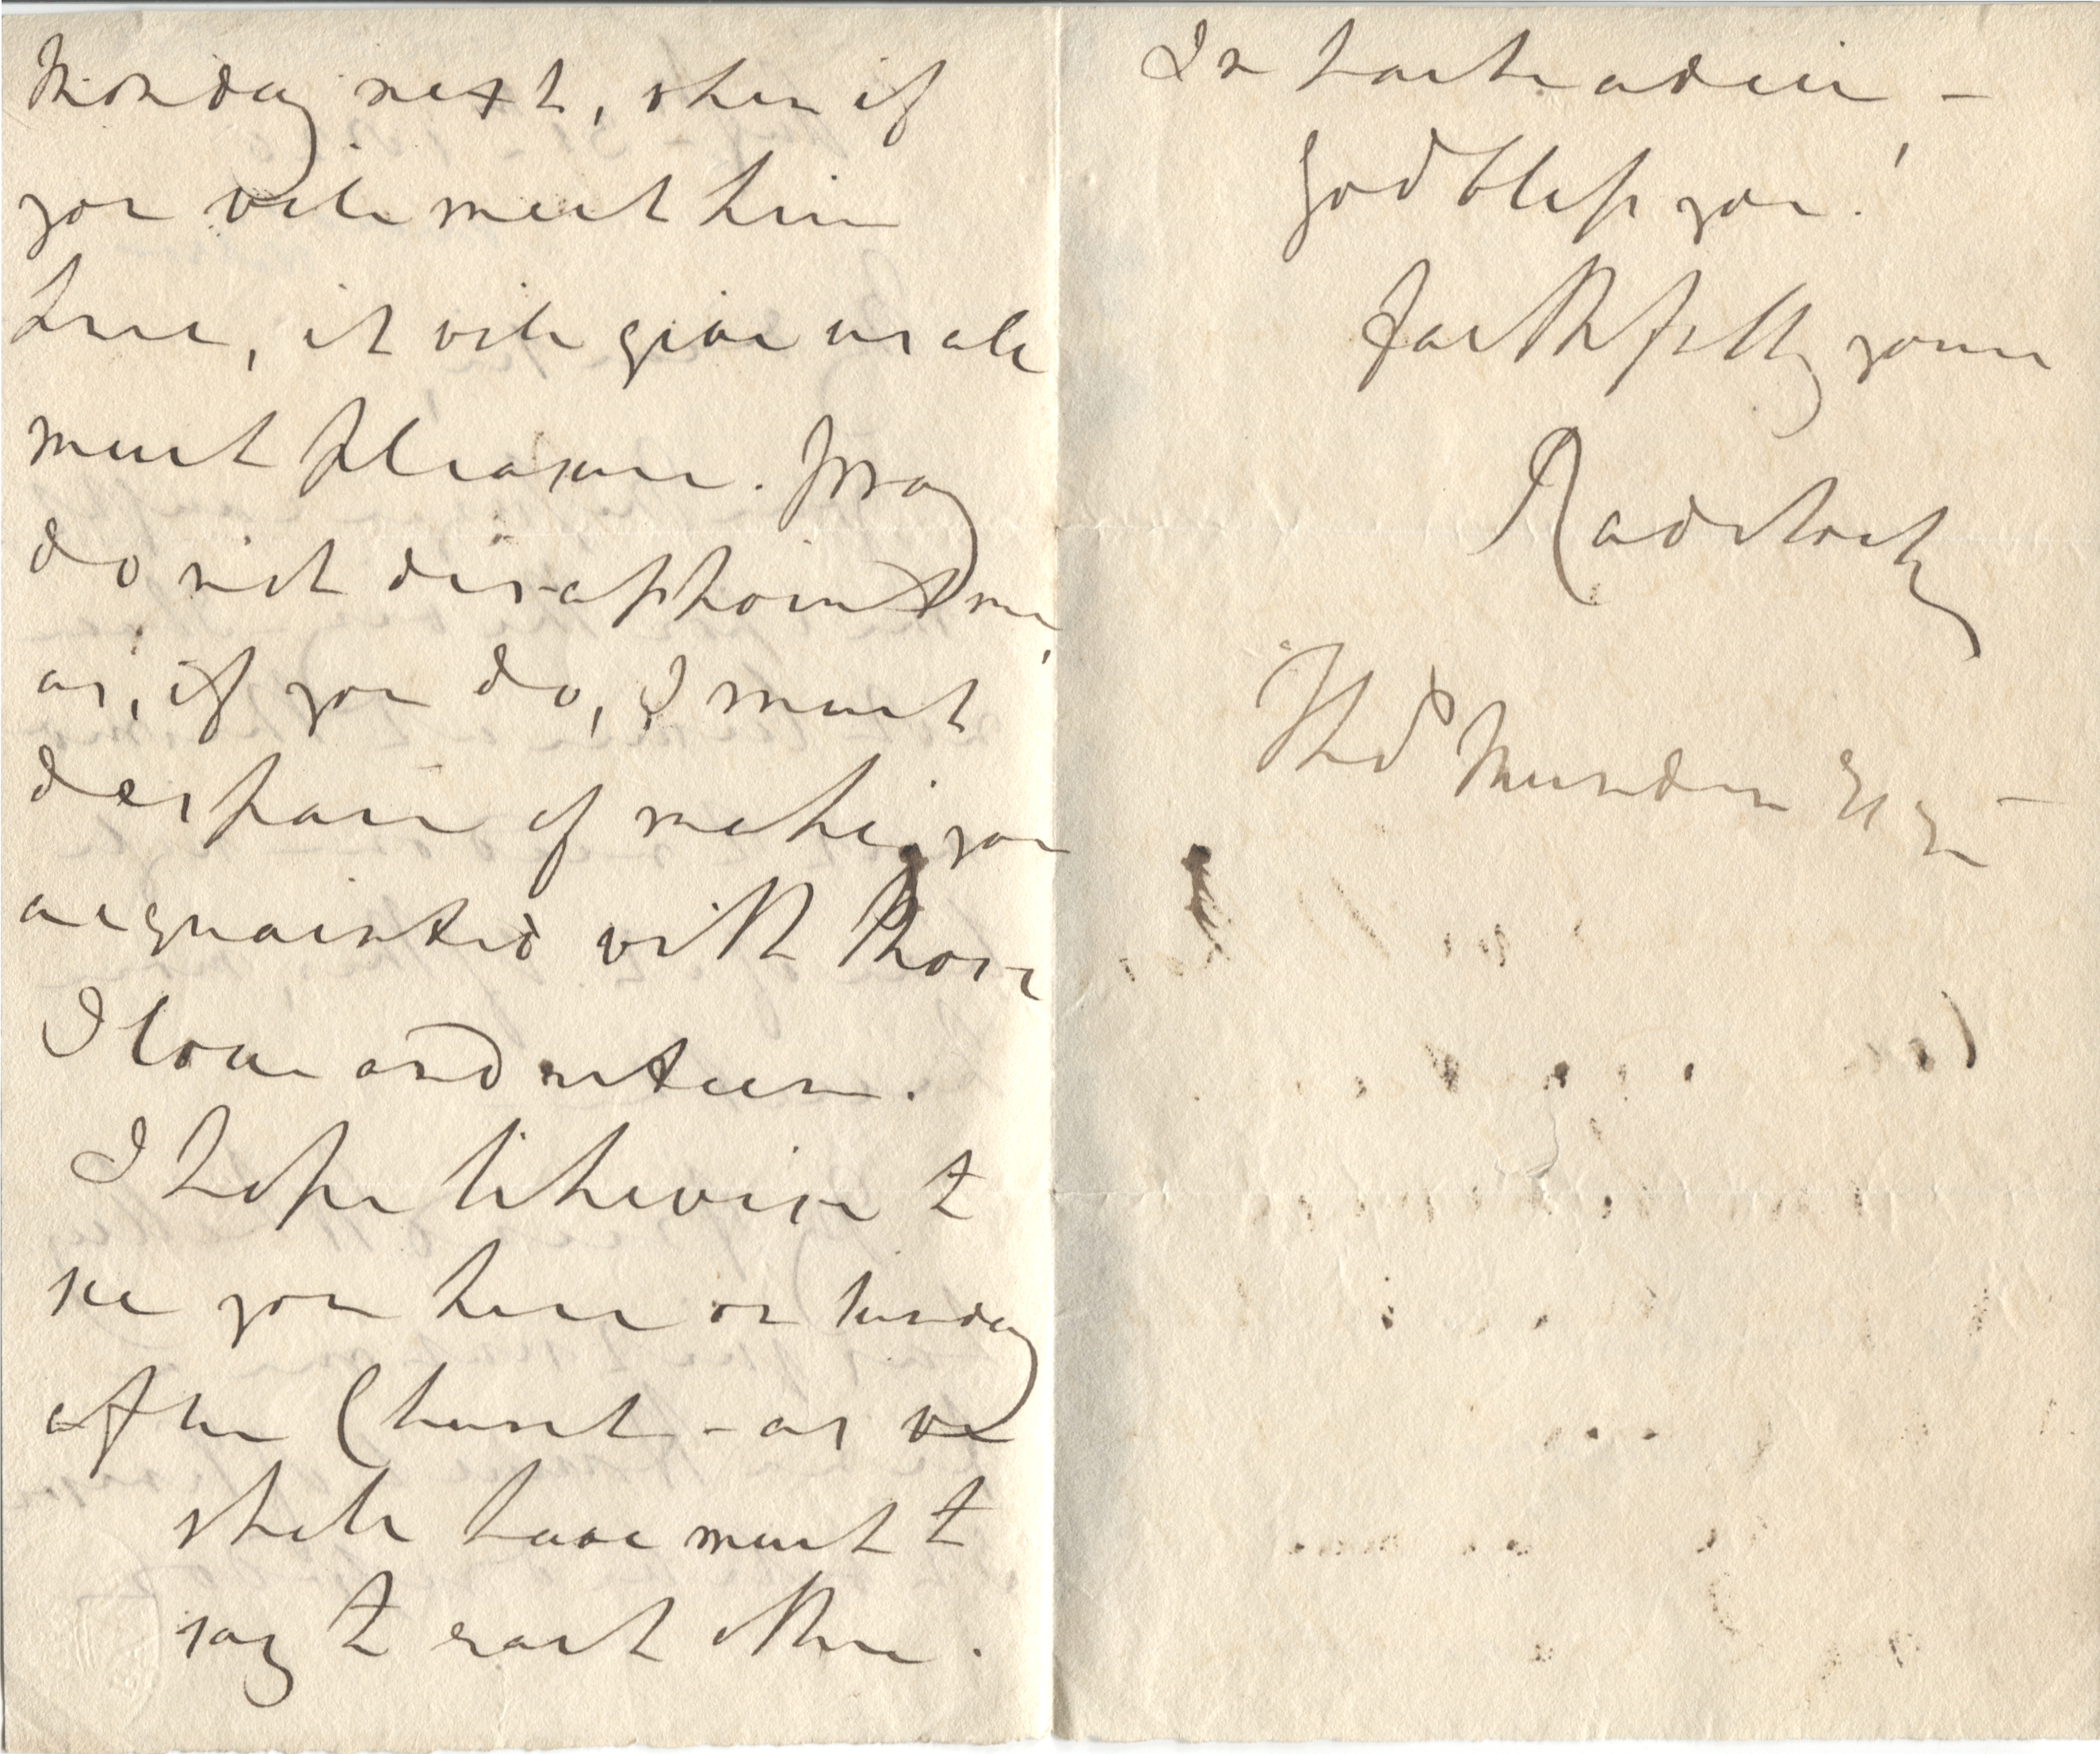 Monday next, when if
you will meet him
here, it will give us all
much pleasure. Pray
do not disappoint me,
as, if you do, I must
despair of making you
acquainted with those
I love and esteem.
I hope likewise to
see you here on Sunday
after Church - as we
shall have much to
say to each other.
In haste adieu -
God bless you!
Faithfully yours
Radstock
Thos Munden Esqr -